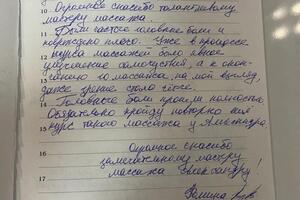 10 Огромное спасибо талантливому
мастеру массажа.
11 Были частые головные боли и
12 повреждено плечо. Уже в процессе
курса массажей было явное
13 улучшение самочувствия, а к окон-
чанию 10 массажа, на мой взгляд,
14 даже зрение стало чётче.
Головные боли прошли полностью.
15 Обязательно пройду повторно ещё
курс такого массажа у Александра.
16 Огромное спасибо
замечательному мастеру
массажа Александру!
17
Фомина